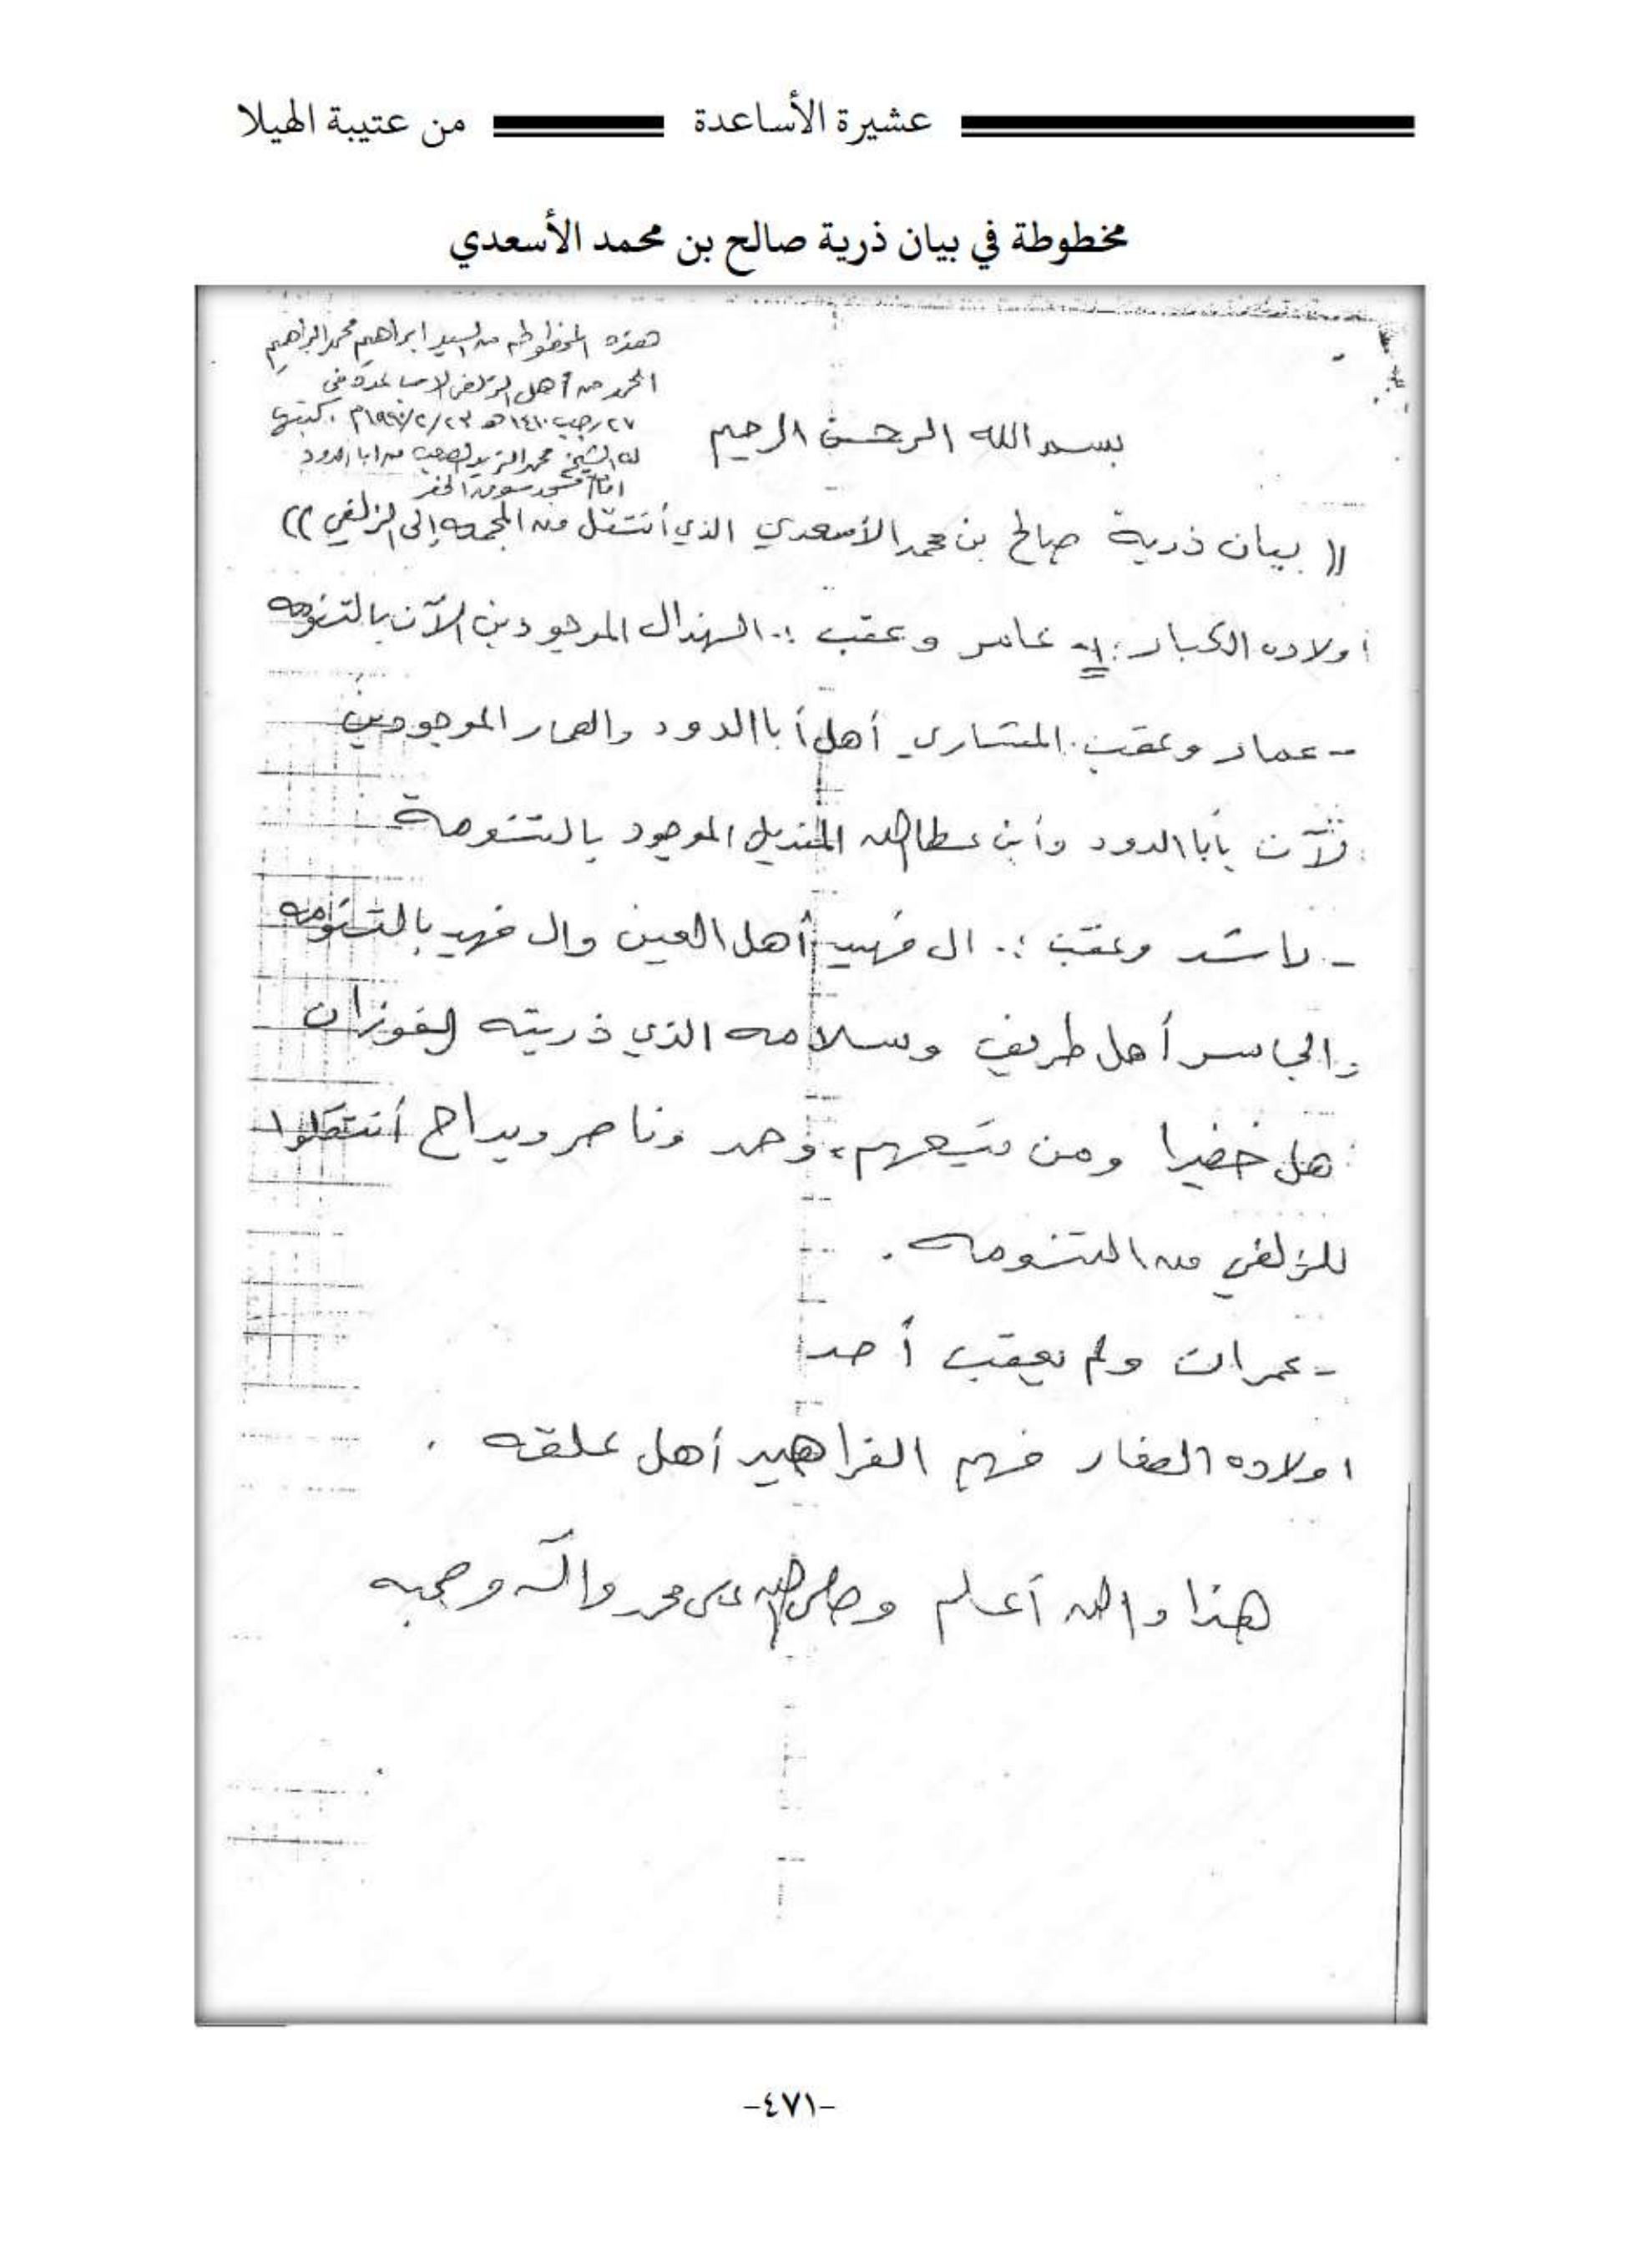 عشيرة الأساعدة من عتيبة الهيلا
مخطوطة في بيان ذرية صالح بن محمد الأسعدي
هذه المخطوطه من السيد ابراهيم محمد البراهيم
الحمد من أهل الزلفي الاساعدة في
٢٧ رجب ١٤١٠هـ ٢٣/٢/١٩٩٠م، كتبها
له الشيخ محمد من ابا الدود
امام مسجد سوق
بسم الله الرحمن الرحيم
(( بيان ذرية صالح بن محمد الأسعدي الذي أنتقل من المجمعه إلى الزلفي ))
أولاده الكبار: ١- عامر وعقب :. الهندال الموجودين الآن بالتنومه
- عمار وعقب: المشاري أهل أبا الدود والعمار الموجودين
الآن بأبا الدود وأبن عطا الله المنديل الموجود بالتنومة
- راشد وعقب :. ال فهيد أهل العين وال فهيد بالتنومه
والجاسر أهل طريف وسلامه الذي ذريته الفوزان
أهل خضيرا ومن يتبعهم، وحمد وناصر وبداح أنتقلوا
للزلفي من التنومه.
- عمران ولم يعقب أحد
اولاده الصغار فهم الفراهيد أهل علقه.
هذا والله أعلم وصلى الله على محمد وآله وصحبه
-٤٧١-